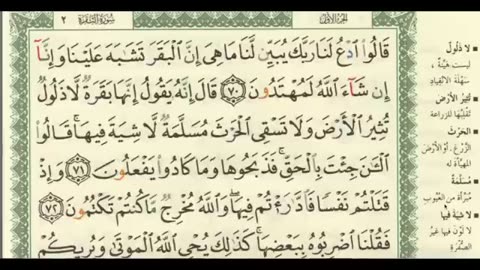 الجزء الأول
سورة البقرة ٢
قَالُوا۟ ٱدْعُ لَنَا رَبَّكَ يُبَيِّن لَّنَا مَا هِىَ إِنَّ ٱلْبَقَرَ تَشَٰبَهَ عَلَيْنَا وَإِنَّآ
إِن شَآءَ ٱللَّهُ لَمُهْتَدُونَ ٧٠ قَالَ إِنَّهُۥ يَقُولُ إِنَّهَا بَقَرَةٌ لَّا ذَلُولٌ
تُثِيرُ ٱلْأَرْضَ وَلَا تَسْقِى ٱلْحَرْثَ مُسَلَّمَةٌ لَّا شِيَةَ فِيهَا ۚ قَالُوا۟
ٱلْـَٰٔنَ جِئْتَ بِٱلْحَقِّ ۚ فَذَبَحُوهَا وَمَا كَادُوا۟ يَفْعَلُونَ ٧١ وَإِذْ
قَتَلْتُمْ نَفْسًا فَٱدَّٰرَْٰٔتُمْ فِيهَا ۖ وَٱللَّهُ مُخْرِجٌ مَّا كُنتُمْ تَكْتُمُونَ ٧٢
فَقُلْنَا ٱضْرِبُوهُ بِبَعْضِهَا ۚ كَذَٰلِكَ يُحْىِ ٱللَّهُ ٱلْمَوْتَىٰ وَيُرِيكُمْ
لا ذلول
ليست هيّنة،
سهلة الانقياد
تثير الأرض
تقلبها للزراعة
الحرث
الزرع، أو الأرض
المهيأة له
مسلّمة
مبرّأة من العيوب
لا شية فيها
لا لون فيها غير
الصفرة